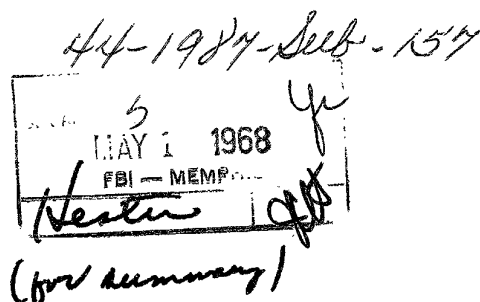 44-1987-Sub-157
5
MAY 1 1968
FBI — MEMP
Hester
(for summary)